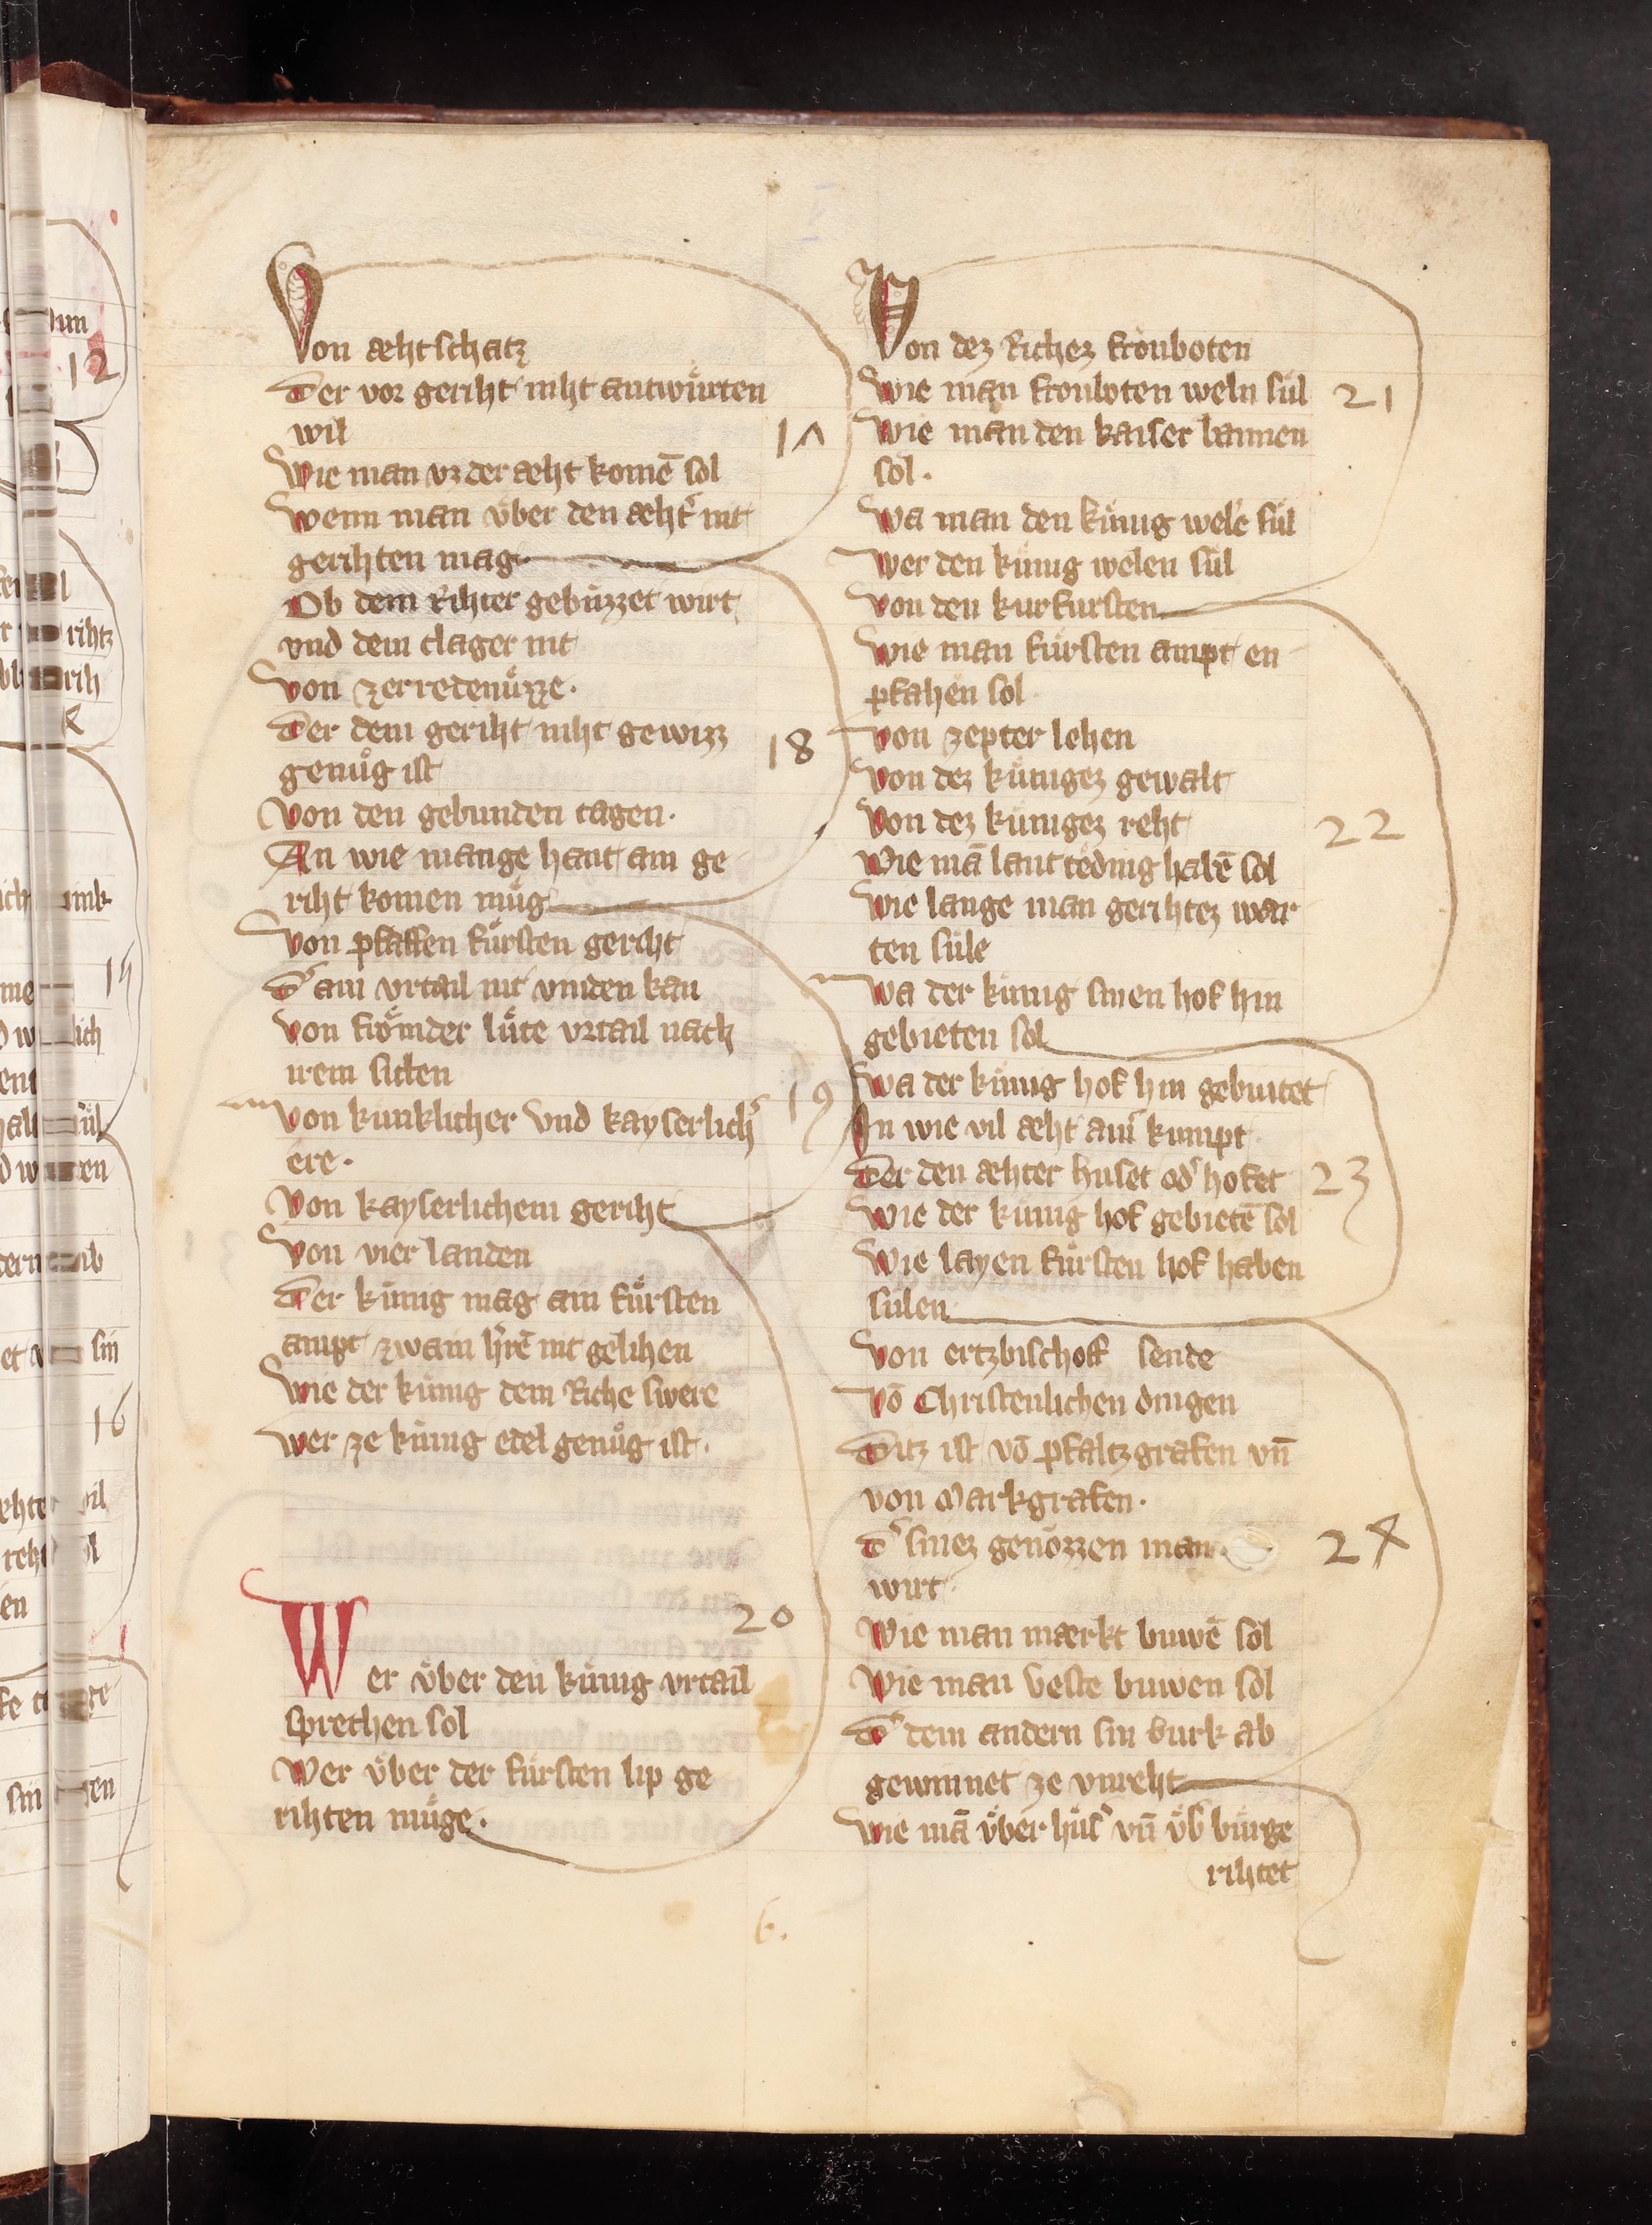 Von æhtschatz
Der vor geriht niht antwürten
wil
17
Wie man vz der æht komē sol
Wenn man vͤber den æhtʼ nit
gerihten mag
Ob dem Rihter gebuzzet wirt
vnd dem clager nit
Von zerredenuͤzze.
Der dem geriht niht gewizz
genuͦg ist
18
Von den gebunden tagen.
An wie mange hant ain ge
riht komen muͤg
Von pfaffen fuͤrsten geriht
Dʼ ain vrtail nit vinden kan
Von froͤmder luͤte vrtail nach
irem sitten
19
Von kunklicher vnd kayserlichʼ
ere.
Von kayserlichem geriht
Von vier landen
Der kuͤnig mag ain fuͤrsten
ampt zwain hʼrē nit gelihen
Wie der kuͤnig dem Riche swere
Wer ze kuͤnig edel genuͦg ist.
20
Wer vͤber den kuͤnig vrtail
sprechen sol
Wer vͤber der fuͤrsten lip ge
rihten muͤge.
Von dez Richez fronboten
Wie man fronboten weln suͤl
21
Wie man den kaiser bannen
sol.
Wa man den kuͤnig welē suͤl
Wer den kuͤnig welen suͤl
Von den kurfursten
Wie man fuͤrsten ampt en
pfahen sol
Von zepter lehen
Von dez kuͤnigez gewalt
Von dez kuͤnigez reht
22
Wie mā lant teding habē sol
Wie lange man gerihtez war
ten suͤle
Wa der kuͤnig sinen hof hin
gebieten sol
Wa der kuͤnig hof hin gebiutet
In wie vil æht ainʼ kumpt
Der den æhter huset odʼ hofet
23
Wie der kuͤnig hof gebietē sol
Wie layen fuͤrsten hof haben
suͤlen
Von ertzbischoff sende
Vō Christenlichen dingen
Ditz ist vō pfaltzgrafen vn̄
von Markgrafen.
Dʼ sinez genozzen man
24
wirt
Wie man mærkt buwē sol
Wie man veste buwen sol
Dʼ dem andern sin burk ab
gewinnet ze vnreht
Wie mā vͤber huͤsʼ vn̄ vͤbʼ buͤrge
rihtet
6.